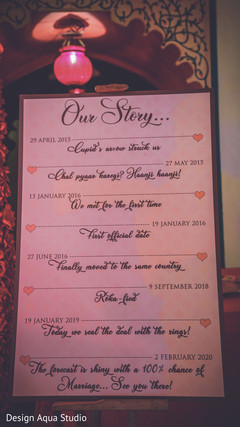 Our Story...
29 APRIL 2015
Cupid's arrow struck us
27 MAY 2015
Chal pyaar karega? Haanji haanji!
13 JANUARY 2016
We met for the first time
19 JANUARY 2016
First official date
27 JUNE 2016
Finally moved to the same country
9 SEPTEMBER 2018
Roka-fied
19 JANUARY 2019
Today we seal the deal with the rings!
2 FEBRUARY 2020
The forecast is shiny with a 100% chance of
Marriage... See you there!
Design Aqua Studio